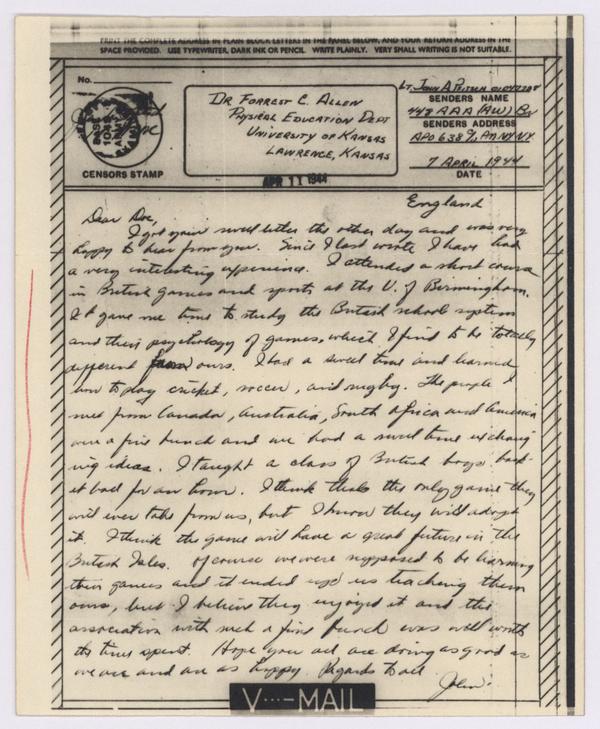 PRINT THE COMPLETE ADDRESS IN PLAIN BLOCK LETTERS IN THE PANEL BELOW, AND YOUR RETURN ADDRESS IN THE
SPACE PROVIDED. USE TYPEWRITER, DARK INK OR PENCIL. WRITE PLAINLY. VERY SMALL WRITING IS NOT SUITABLE.
No.
CENSORS STAMP
DR FORREST C. ALLEN
PHYSICAL EDUCATION DEPT
UNIVERSITY OF KANSAS
LAWRENCE, KANSAS
APR 11 1944
LT. JOHN A
SENDERS NAME
448 AAA (AW) Bn
SENDERS ADDRESS
APO 638 % PM NY NY
7 APRIL 1944
DATE
England
Dear Doc,
I got your sweet letter the other day and was very
happy to hear from you. Since I last wrote I have had
a very interesting experience. I attended a short course
in British games and sports at the U. of Birmingham.
It gave me time to study the British school system
and their psychology of games, which I find to be totally
different from ours. I had a sweet time and learned
how to play cricket, soccer, and rugby. The people I
met from Canada, Australia, South Africa and America
were a fine bunch and we had a sweet time exchang-
ing ideas. I taught a class of British boys bask-
et ball for an hour. I think thats the only game they
will ever take from us, but I know they will adopt
it. I think the game will have a great future in the
British Isles. Of course we were supposed to be learning
their games and it ended up us teaching them
ours, but I believe they enjoyed it and the
association with such a fine bunch was well worth
the time spent. Hope you all are doing as good as
we are and are as happy. Regards to all
John
V···—MAIL